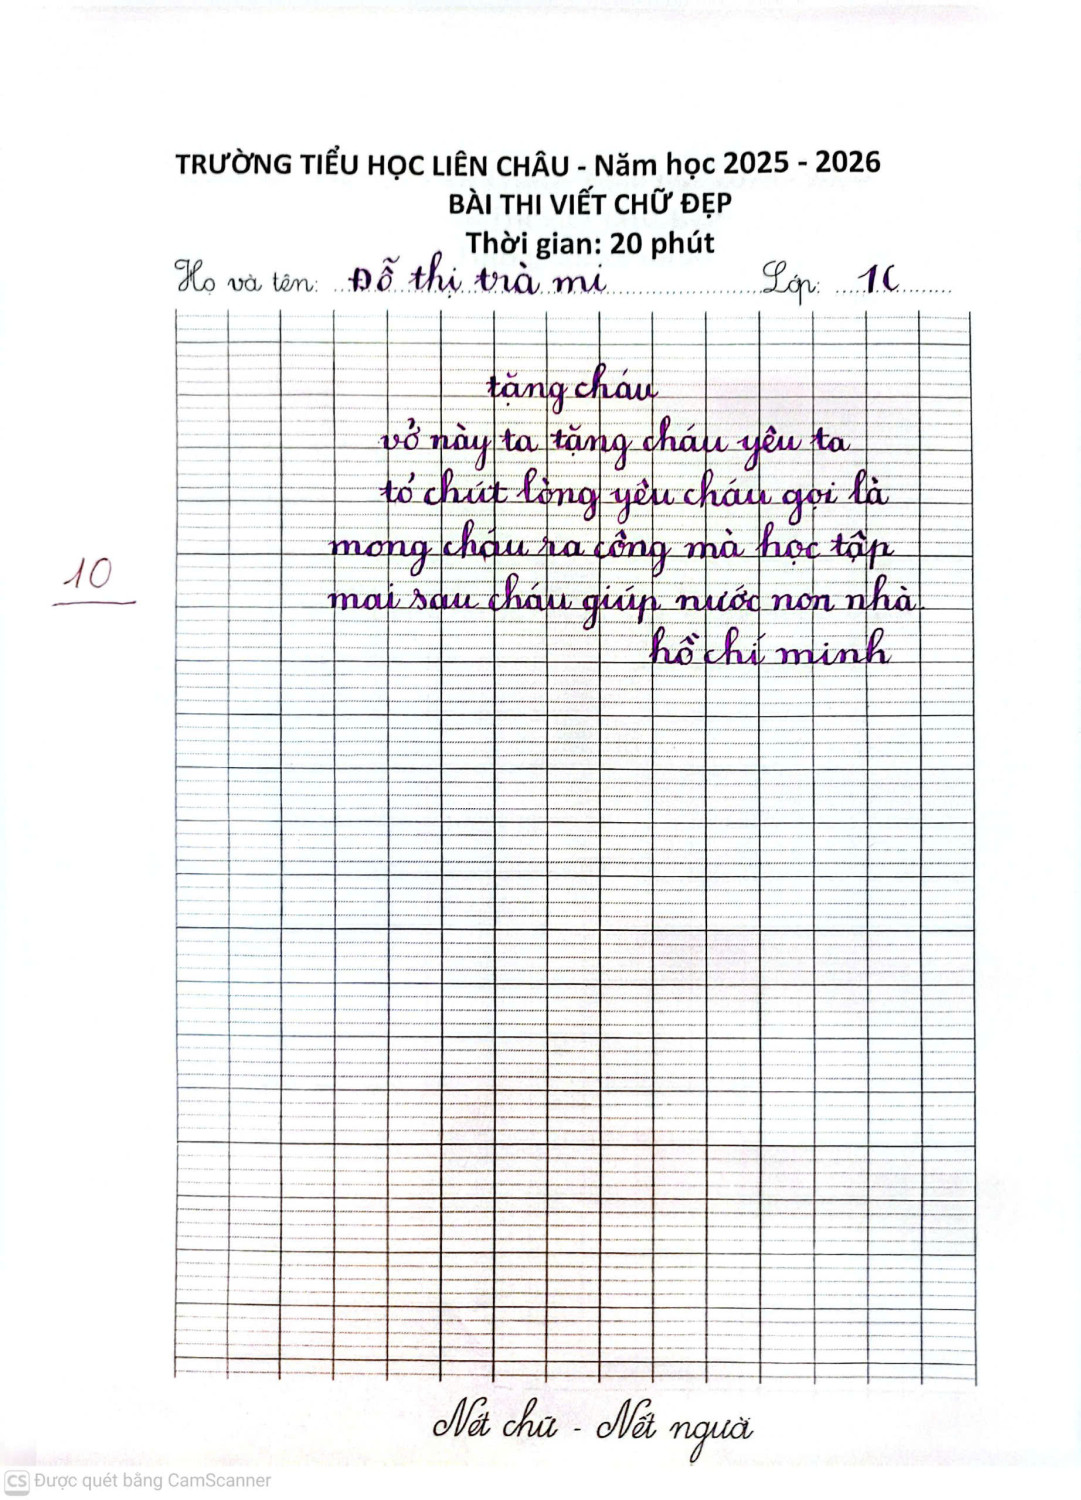 TRƯỜNG TIỂU HỌC LIÊN CHÂU - Năm học 2025 - 2026
BÀI THI VIẾT CHỮ ĐẸP
Thời gian: 20 phút
Họ và tên: Đỗ thị trà mi Lớp: 1C
tặng cháu
vở này ta tặng cháu yêu ta
tỏ chút lòng yêu cháu gọi là
10
mong cháu ra công mà học tập
mai sau cháu giúp nước non nhà.
hồ chí minh
Nét chữ - Nết người
CS Được quét bằng CamScanner